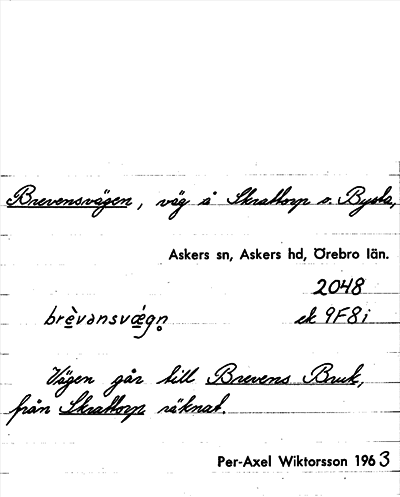 Brevensvägen, väg å Skrattorp o. Bysta,
Askers sn, Askers hd, Örebro län.
2048
brèvənsvǽgn̥ ek 9F8i
Vägen går till Brevens Bruk,
från Skrattorp räknat.
Per-Axel Wiktorsson 1963